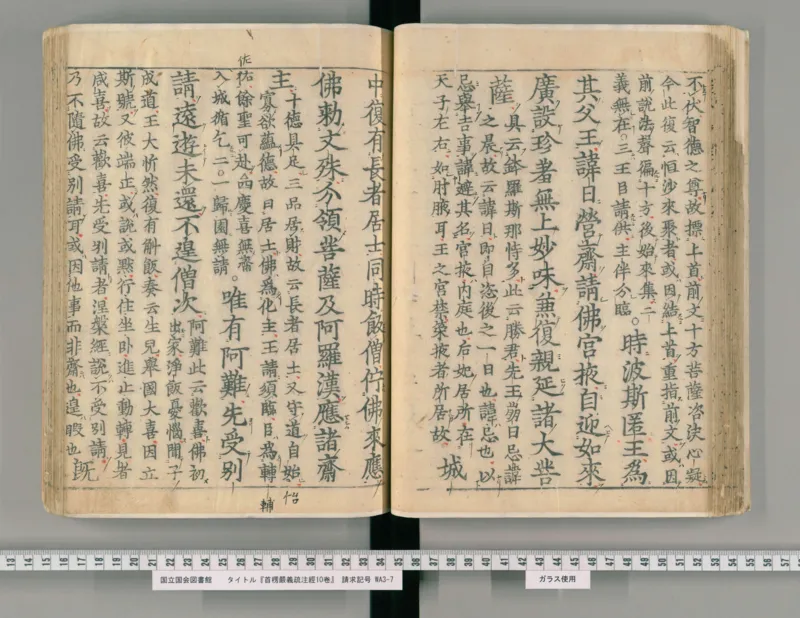 不伏智德之尊故摽上首前文十方菩薩咨決心疑
今此復云恒沙來聚者或因結上首重指前文或因
前說法聲徧十方後始來集二
義無在三王日請供主伴分臨。時波斯匿王為
其父王諱日營齋請佛宮掖自迎如來
廣設珍羞無上妙味兼復親延諸大菩
薩
具云鉢羅斯那恃多此云勝君先王崩日忌諱
之晨故云諱日即自恣後之一日也諱忌也以
忌舉吉事諱避其名宮掖內庭也后妃居所在
天子左右如肘腋耳王之宮禁梁掖者所居故
城
中復有長者居士同時飯僧佇佛來應
佛勅文殊分領菩薩及阿羅漢應諸齋
主
十德具足三品居財故云長者居士又守道自始
怡
寡欲蘊德故曰居士佛為化主王請須臨日為轉
輔
佐
祐餘聖可赴函慶喜無齋
入城循乞二。一歸園無請
。唯有阿難先受別
請遠遊未還不遑僧次
阿難此云歡喜佛初
出家淨飯憂惱聞子
成道王大忻然復有斛飯奏云生兒舉國大喜因立
斯號又彼端正或說或默行住坐臥進止動轉見者
咸喜故云歡喜先受別請者涅槃經說不受別請
乃不隨佛受別請耳或因他事而非齋也遑暇也
既
国立国会図書館 タイトル『首楞厳義疏注經10巻』 請求記号 WA3-7
ガラス使用